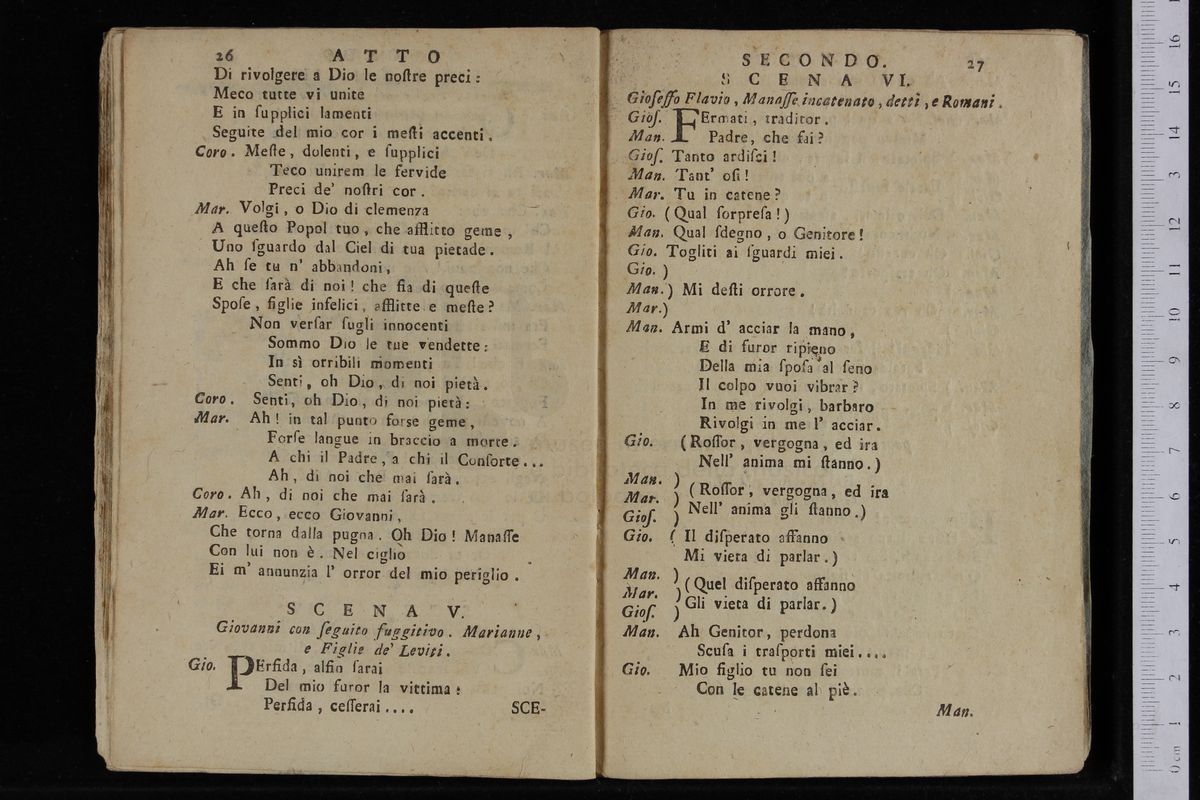 26 A T T O
Di rivolgere a Dio le noſtre preci:
Meco tutte vi unite
E in ſupplici lamenti
Seguite del mio cor i meſti accenti.
Coro. Meſte, dolenti, e ſupplici
Teco unirem le fervide
Preci de' noſtri cor.
Mar. Volgi, o Dio di clemenza
A queſto Popol tuo, che afflitto geme,
Uno ſguardo dal Ciel di tua pietade.
Ah ſe tu n' abbandoni,
E che ſarà di noi! che fia di queſte
Spoſe, figlie infelici, afflitte e meſte?
Non verſar ſugli innocenti
Sommo Dio le tue vendette:
In sì orribili momenti
Senti, oh Dio, di noi pietà.
Coro. Senti, oh Dio, di noi pietà:
Mar. Ah! in tal punto forse geme,
Forſe langue in braccio a morte.
A chi il Padre, a chi il Conſorte...
Ah, di noi che mai ſarà.
Coro. Ah, di noi che mai ſarà.
Mar. Ecco, ecco Giovanni,
Che torna dalla pugna. Oh Dio! Manaſſe
Con lui non è. Nel ciglio
Ei m' annunzia l' orror del mio periglio.
S C E N A V.
Giovanni con ſeguito fuggitivo. Marianne,
e Figlie de' Leviti.
Gio. PErfida, alfin ſarai
Del mio furor la vittima:
Perfida, ceſſerai....
SCE-
SECONDO. 27
S C E N A VI.
Gioſeffo Flavio, Manaſſe incatenato, detti, e Romani.
Gioſ. FErmati, traditor.
Man. Padre, che fai?
Gioſ. Tanto ardiſci!
Man. Tant' oſi!
Mar. Tu in catene?
Gio. (Qual ſorpreſa!)
Man. Qual ſdegno, o Genitore!
Gio. Togliti ai ſguardi miei.
Gio. )
Man.) Mi deſti orrore.
Mar.)
Man. Armi d' acciar la mano,
E di furor ripieno
Della mia ſpoſa al ſeno
Il colpo vuoi vibrar?
In me rivolgi, barbaro
Rivolgi in me l' acciar.
Gio. (Roſſor, vergogna, ed ira
Nell' anima mi ſtanno.)
Man. )
Mar. ) (Roſſor, vergogna, ed ira
Gioſ. ) Nell' anima gli ſtanno.)
Gio. ( Il diſperato affanno
Mi vieta di parlar.)
Man. )
Mar. ) (Quel diſperato affanno
Gioſ. ) Gli vieta di parlar.)
Man. Ah Genitor, perdona
Scuſa i traſporti miei....
Gio. Mio figlio tu non ſei
Con le catene al piè.
Man.
0 cm 1 2 3 4 5 6 7 8 9 10 11 12 13 14 15 16